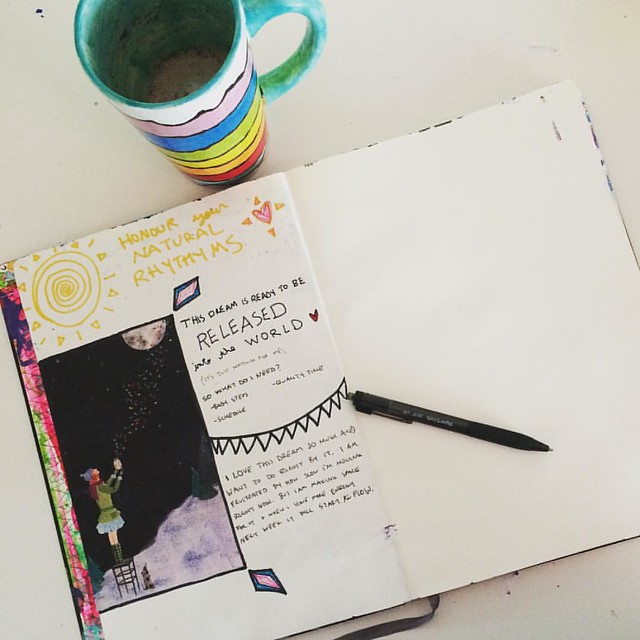 HONOUR your
NATURAL
RHYTHYMS
THIS DREAM IS READY TO BE
RELEASED
into the WORLD
SO WHAT DO I NEED?
-BABY STEPS
-QUALITY TIME
-SCHEDULE
I LOVE THIS DREAM SO MUCH AND
WANT TO DO RIGHT BY IT. I AM
FRUSTRATED BY HOW SLOW I'M MOVING
RIGHT NOW. BUT I AM MAKING SPACE
FOR IT & WHEN I HAVE MORE ENERGY
NEXT WEEK IT WILL START to FLOW.